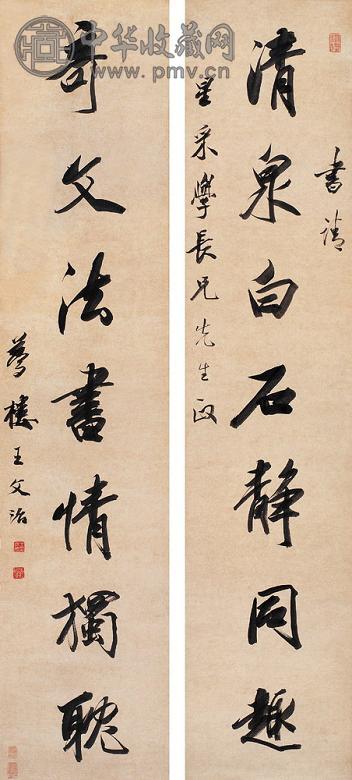 中华收藏网
www.pmv.cn
書請
清泉白石静同趣
星采學長兄先生政
奇文法書情獨耽
夢樓王文治